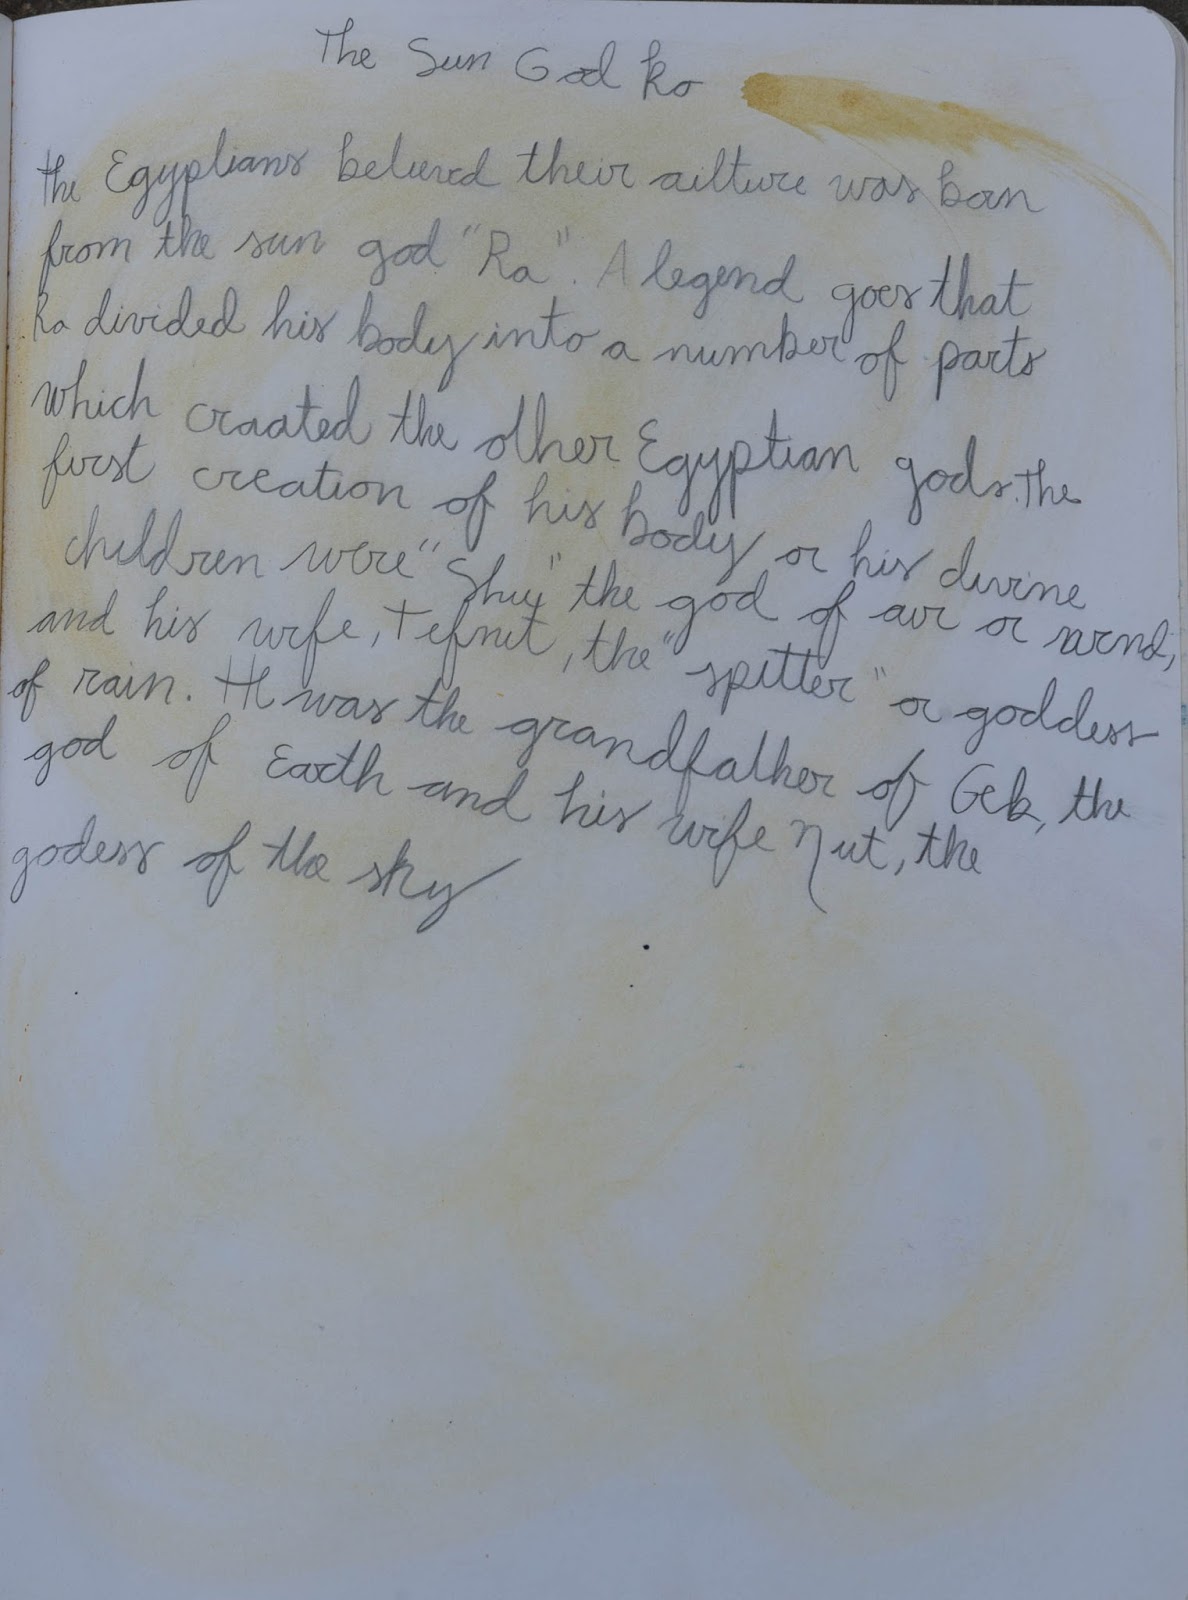 The Sun God Ra
The Egyptians believed their culture was born
from the sun god "Ra". A legend goes that
Ra divided his body into a number of parts
which craated the other Egyptian gods. The
first creation of his body or his divine
children were "Shu" the god of air or wind,
and his wife, Tefnut, the "spitter" or goddess
of rain. He was the grandfather of Geb, the
god of Earth and his wife Nut, the
godess of the sky